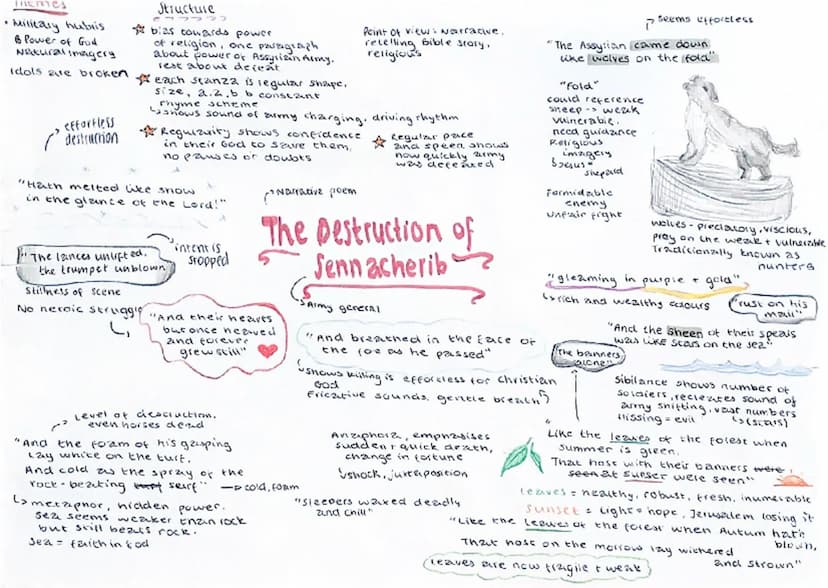 Themes
• Military hubris
& Power of God
Natural Imagery
Idols are broken
Structure
bias towards power
of religion, one paragraph
about power of Assyrian Army,
rest about defeat
each stanza is regular shape,
size, a.a,b b constant
rhyme scheme
↳ shows sound of army charging, driving rhythm
Regularity shows confidence
in their God to save them,
no pauses or doubts
Point of view: Narrative,
retelling Bible story,
religious
Regular pace
and speed shows
how quickly army
was defeated
seems effortless
"The Assyrian came down
like wolves on the fold"
"Fold"
could reference
sheep → weak
vulnerable,
need guidance
Religious
imagery
↳ Jesus =
shepard
Formidable
enemy
unfair fight
wolves - predatory, viscious,
prey on the weak + vulnerable
Traditionally known as
hunters
effortless
destruction
"Hath melted like snow
in the glance of the Lord!"
Narrative poem
The Destruction of
Sennacherib
↳ Army general
"The lances unlifted,
the trumpet unblown
intent is
stopped
stillness of scene
No heroic struggle
"And their hearts
but once heaved
and forever
grew still"
"And breathed in the face of
the foe as he passed"
↳ shows killing is effortless for Christian
God
Fricative sounds, gentle breath
"gleaming in purple + gold"
↳ rich and wealthy colours
"rust on his
mail"
"And the sheen of their spears
was like stars on the sea"
The banners
alone"
Sibilance shows number of
soldiers, recreates sound of
army shifting, vast numbers
Hissing = evil
↳ (stars)
Level of destruction,
even horses dead
"And the foam of his gasping
lay white on the turf.
And cold as the spray of the
rock-beating turf surf"
→ cold, foam
↳ metaphor, hidden power.
sea seems weaker than rock
but still beats rock.
Sea = faith in God
Anaphora, emphasises
sudden + quick death,
change in fortune
↳ shock, juxtaposition
"sleepers waxed deadly
and chill"
"Like the leaves of the forest when
summer is green.
That host with their banners were
seen at sunset were seen"
leaves = healthy, robust, fresh, inumerable
sunset = light = hope, Jerusalem losing it
"Like the leaves of the forest when Autum hath
blown,
That host on the morrow lay withered
and strown"
leaves are now fragile + weak